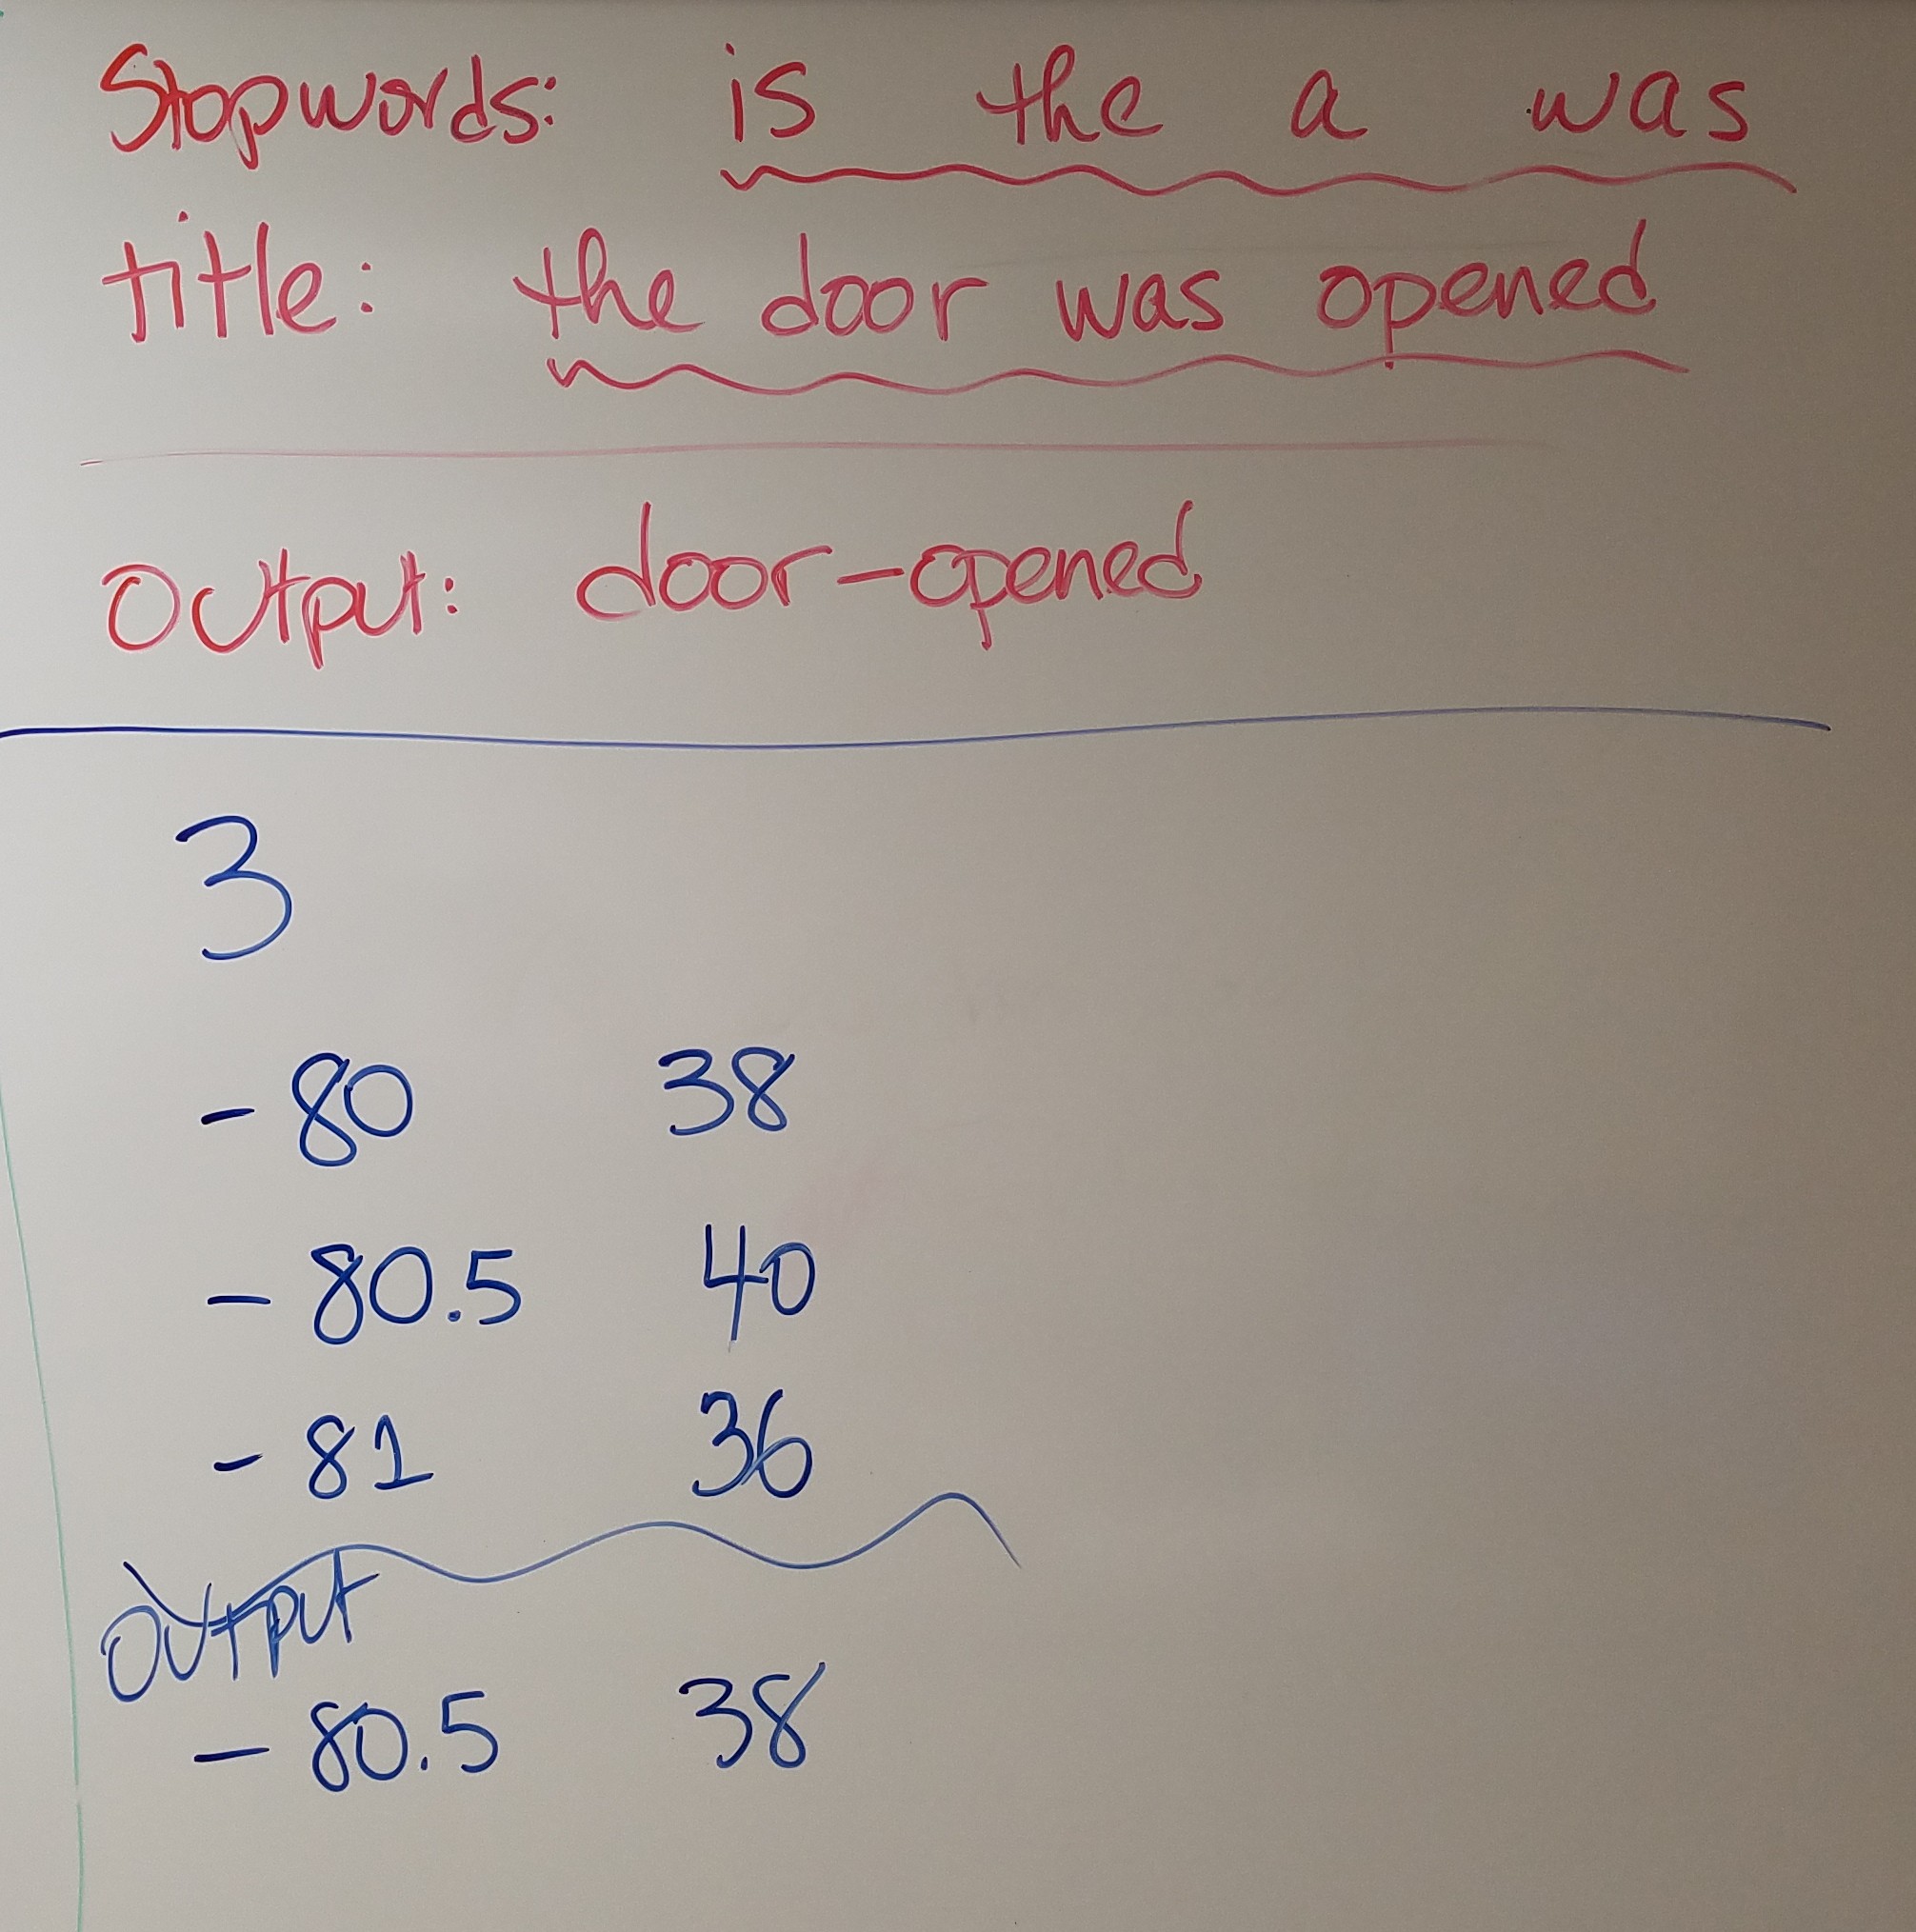 Stopwords: is the a was
title: the door was opened
Output: door-opened
3
-80 38
-80.5 40
-81 36
Output
-80.5 38